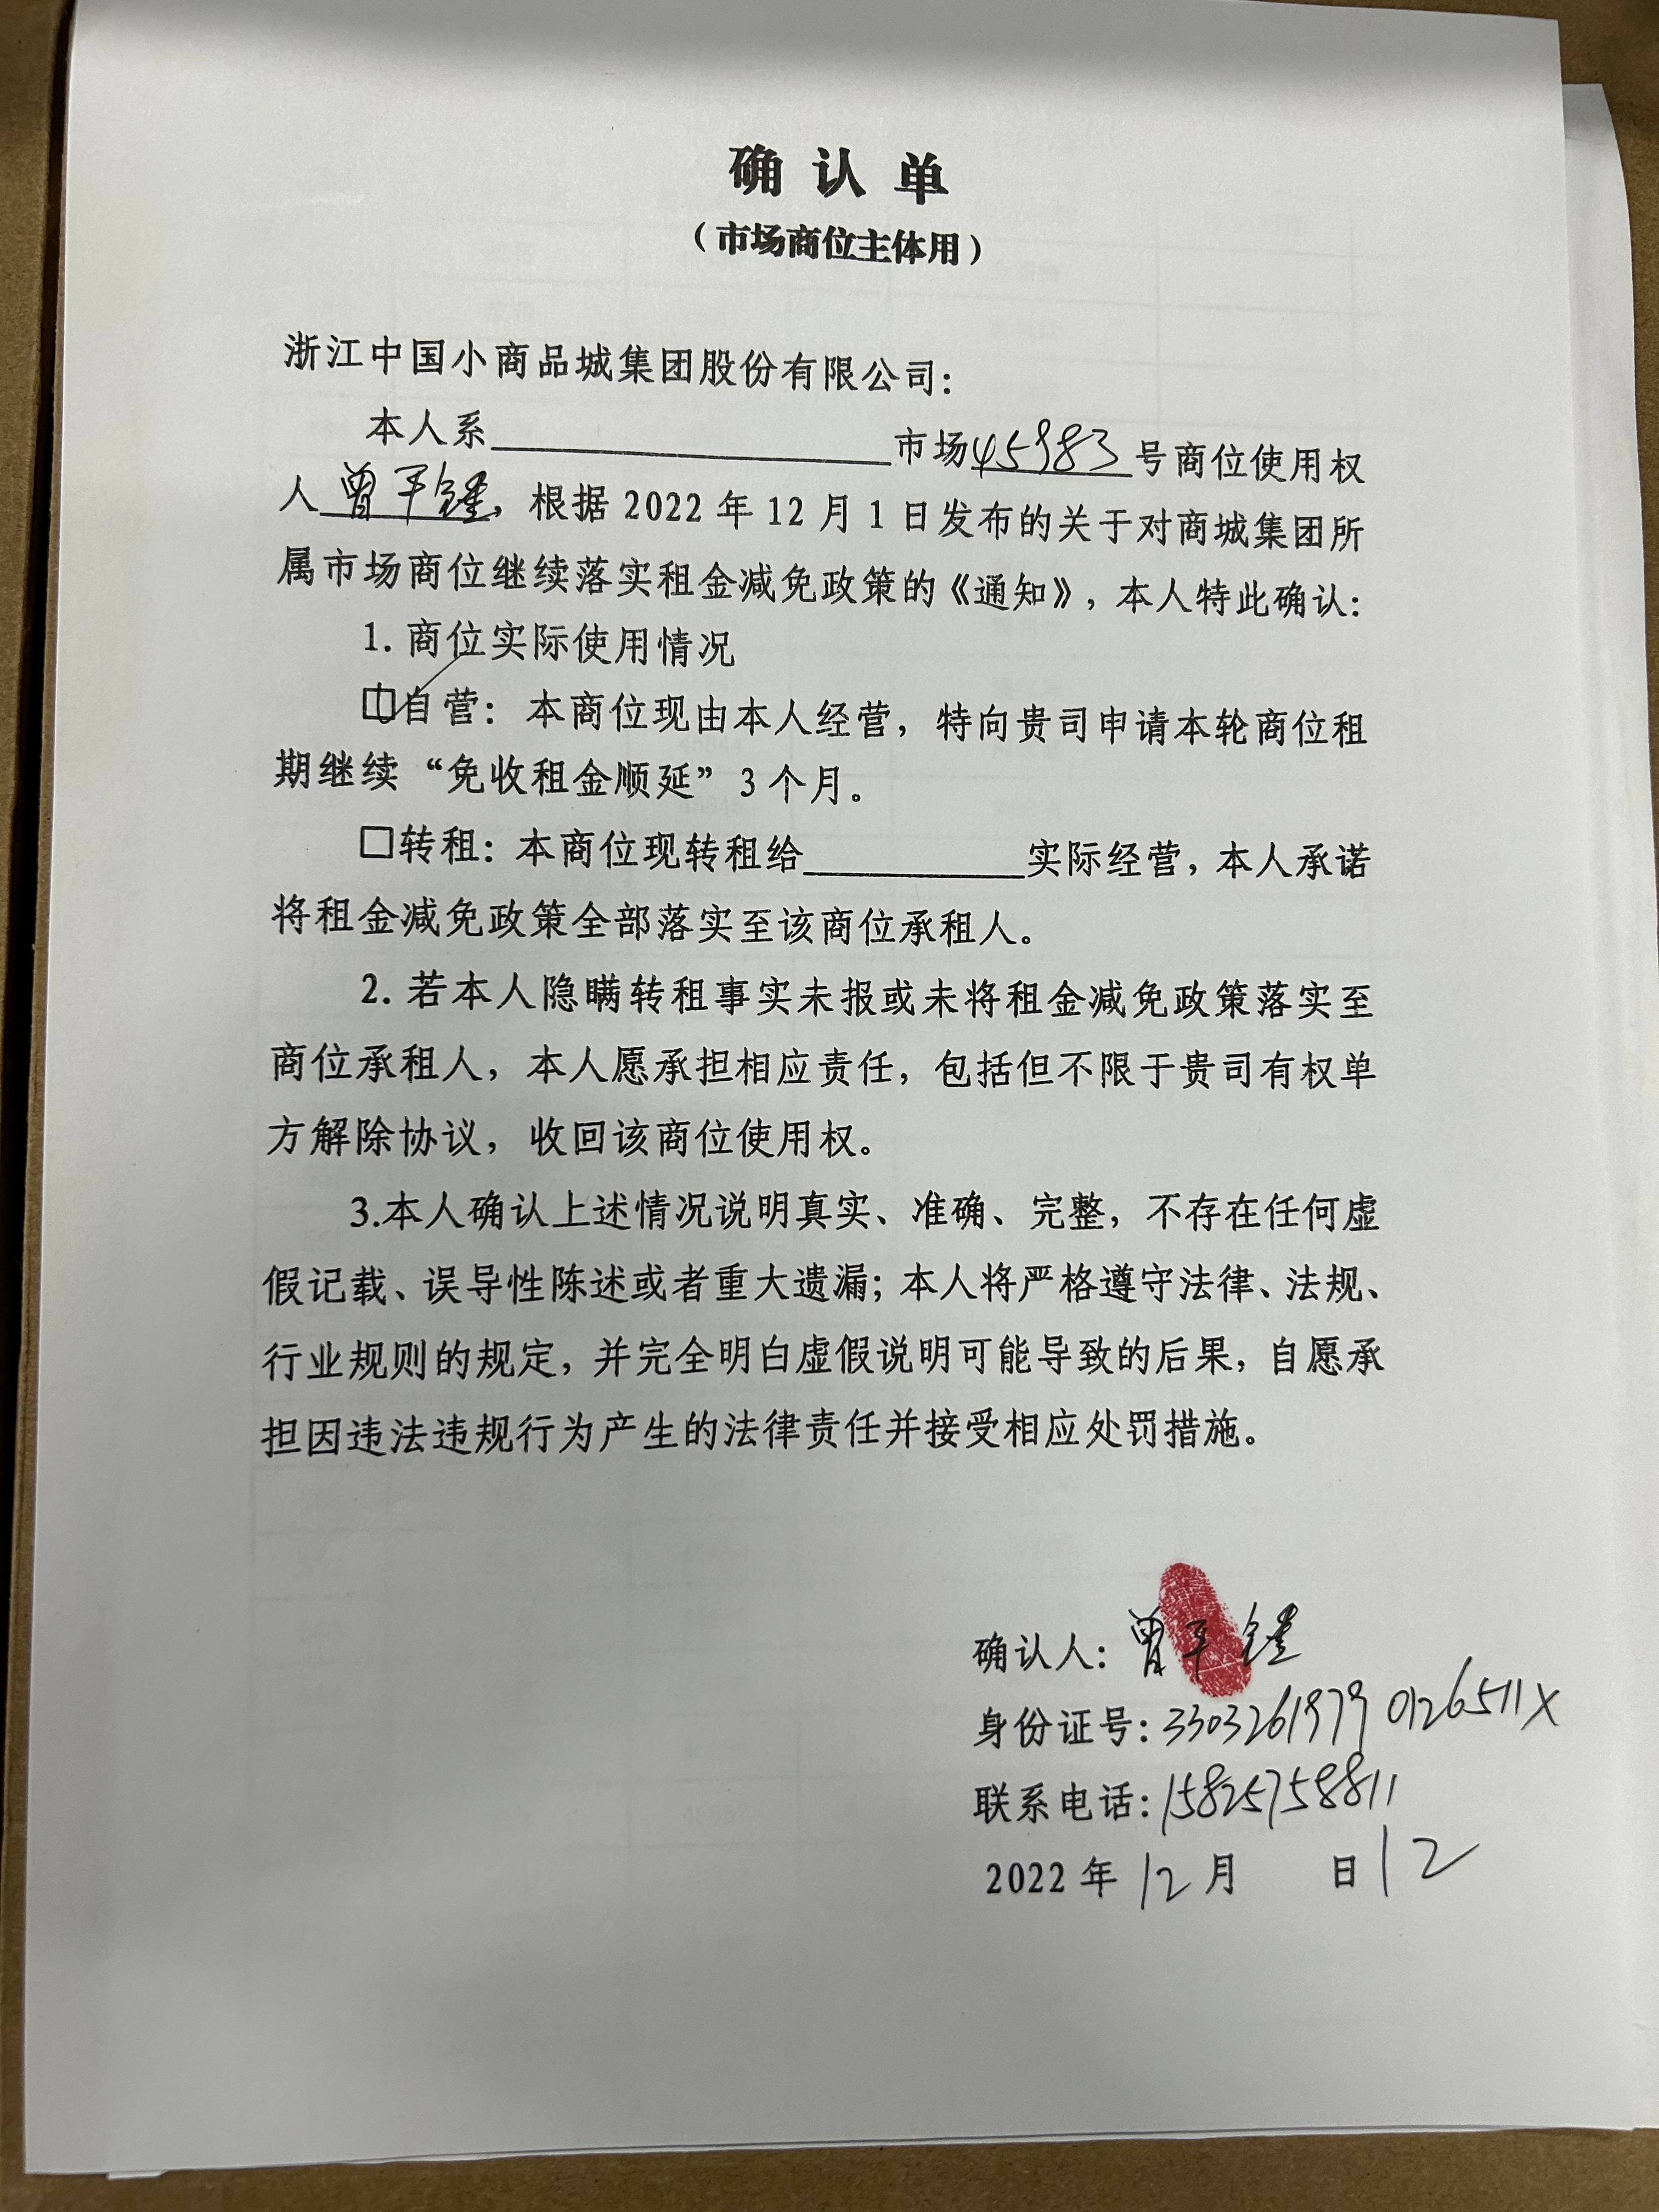 确认单
（市场商位主体用）
浙江中国小商品城集团股份有限公司：
本人系____________市场45983号商位使用权
人曾平锺，根据2022年12月1日发布的关于对商城集团所
属市场商位继续落实租金减免政策的《通知》，本人特此确认：
1. 商位实际使用情况
☑自营：本商位现由本人经营，特向贵司申请本轮商位租
期继续“免收租金顺延”3个月。
□转租：本商位现转租给________实际经营，本人承诺
将租金减免政策全部落实至该商位承租人。
2. 若本人隐瞒转租事实未报或未将租金减免政策落实至
商位承租人，本人愿承担相应责任，包括但不限于贵司有权单
方解除协议，收回该商位使用权。
3.本人确认上述情况说明真实、准确、完整，不存在任何虚
假记载、误导性陈述或者重大遗漏；本人将严格遵守法律、法规、
行业规则的规定，并完全明白虚假说明可能导致的后果，自愿承
担因违法违规行为产生的法律责任并接受相应处罚措施。
确认人：曾平锺
身份证号：33032619790126511X
联系电话：15825758811
2022年12月 日12